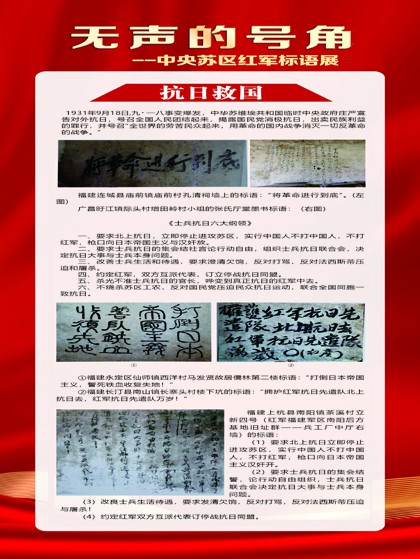 无声的号角
--中央苏区红军标语展
抗日救国
1931年9月18日,九·一八事变爆发，中华苏维埃共和国临时中央政府庄严宣
告对外抗日，号召全国人民团结起来，揭露国民党消极抗日，出卖民族利益
的罪行，并号召"全世界的劳苦民众起来，用革命的国内战争消灭一切反革命
的战争。"
将革命进行到底
福建连城县庙前镇庙前村孔清祠墙上的标语："将革命进行到底"。(左
图)
广昌旴江镇际头村塔田衿村小组的张氏厅堂墨书标语：（右图）
《士兵抗日六大纲领》
一、要求北上抗日，立即停止进攻苏区，实行中国人不打中国人，不打
红军，枪口向日本帝国主义与汉奸放。
二、要求士兵抗日的集会结社言论行动自由，组织士兵抗日联合会，决
定抗日大事与士兵本身问题。
三、改善士兵生活待遇，要求澄清欠饷，反对打骂，反对法西斯蒂压
迫和屠杀。
四、约定红军，双方互派代表，订立停战抗日同盟。
五、杀光不准士兵抗日的官长，哗变到真正抗日的红军中去。
六、不烧杀苏区工农，反对国民党压迫民众抗日运动，联合全国同胞一
致抗日。
打倒日本
帝国主义
誓死铁血
收复失地
拥护红军抗日先
遣队北上抗日去
红军抗日先遣队
万岁
①
②
①福建永定区仙师镇西洋村马发贤故居儒林第二楼标语："打倒日本帝国
主义，誓死铁血收复失地！"
②福建长汀县南山镇长寨头村楼下坑的标语："拥护红军抗日先遣队北上
抗日去，红军抗日先遣队万岁！"
福建上杭县南阳镇茶溪村立
新四号（红军福建军区南阳后方
基地旧址群——兵工厂中厅右
墙）的标语：
（1）要求北上抗日立即停止
进攻苏区，实行中国人不打中国
人，不打红军，枪口向日本帝国
主义汉奸开。
（2）要求士兵抗日的集会结
社，论行动自由组织，士兵抗日
联合会决定抗日大事与士兵本身
问题。
（3）改良士兵生活待遇，要求发清欠饷，反对打骂，反对法西斯蒂压迫
与屠杀！
（4）约定红军双方互派代表订停战抗日同盟。